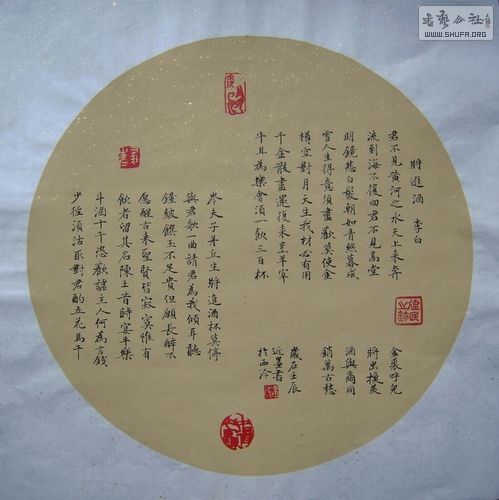 將進酒 李白
君不見黃河之水天上來奔
流到海不復回君不見高堂
明鏡悲白髮朝如青絲暮成
雪人生得意須盡歡莫使金
樽空對月天生我材必有用
千金散盡還復來烹羊宰
牛且為樂會須一飲三百杯
岑夫子丹丘生將進酒杯莫停
與君歌一曲請君為我傾耳聽
鐘鼓饌玉不足貴但願長醉不
愿醒古來聖賢皆寂寞惟有
飲者留其名陳王昔時宴平樂
斗酒十千恣歡謔主人何為言錢
少徑須沽取對君酌五花馬千
金裘呼兒
將出換美
酒與爾同
銷萬古愁
歲在壬辰
近墨書
於西泠
書藝公社
WWW.SHUFA.ORG